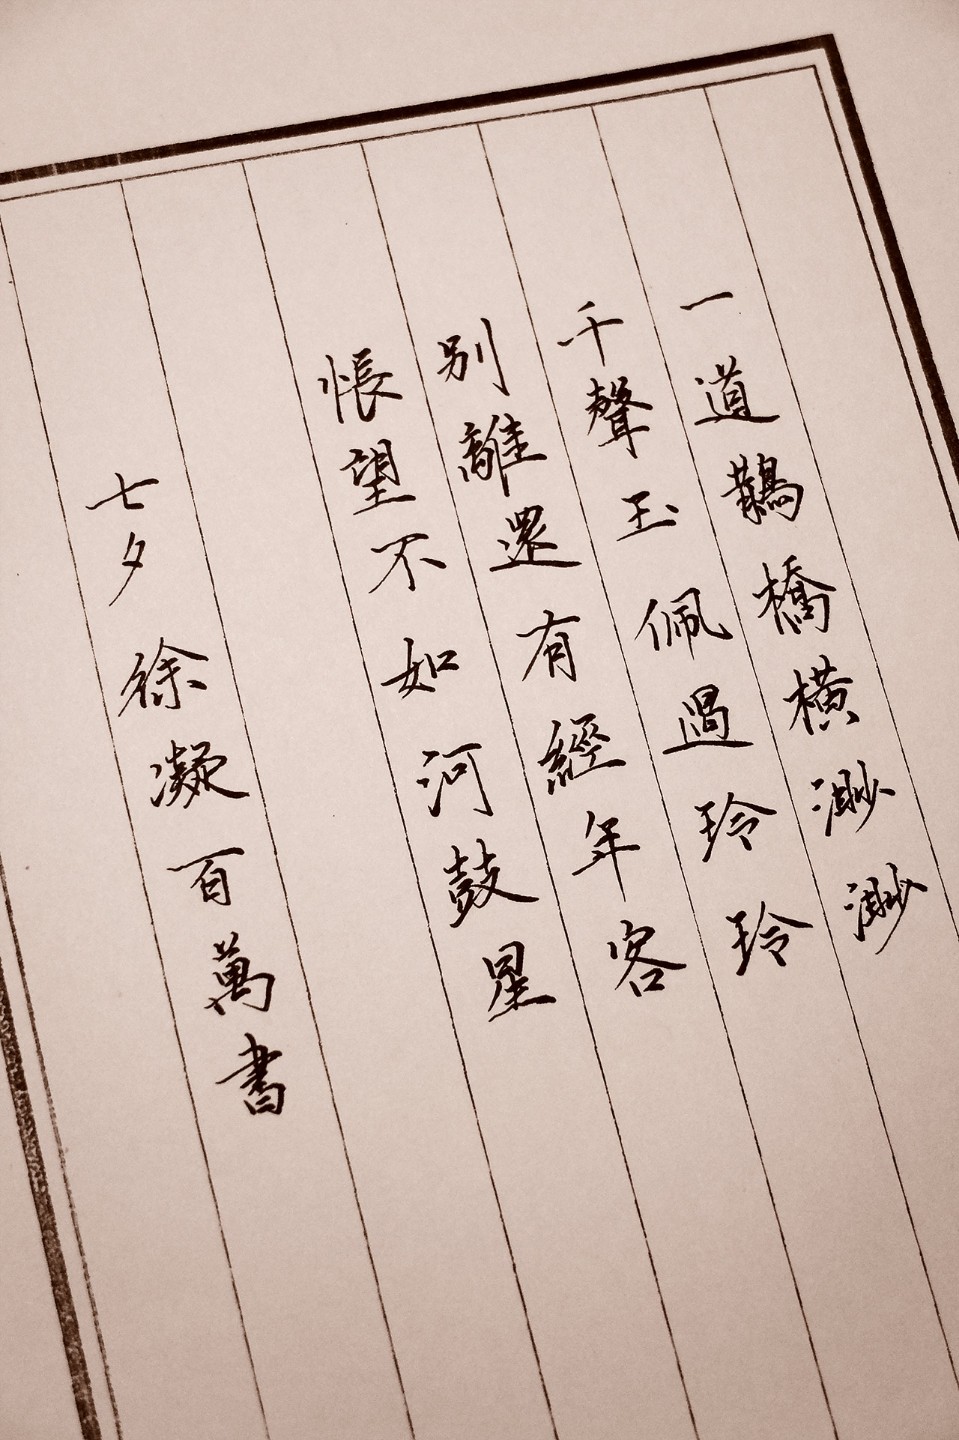 一道鵲橋橫渺渺
千聲玉佩過玲玲
別離還有經年客
悵望不如河鼓星
七夕徐凝百萬書